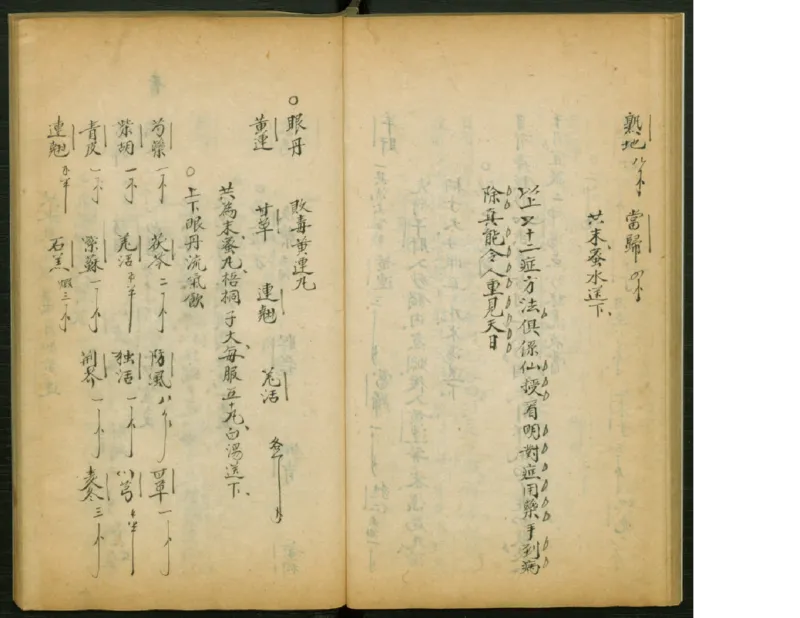 熟地 八小 當歸 小
共末蜜水送下
以上又十二症方法俱係仙授看明對症用藥手到病
除真能令人重見天日
○眼丹 敗毒黄連丸
黄連 甘草 連翹 羌活
共為末蜜丸梧桐子大每服五十丸白湯送下
○上下眼丹流氣飲
芍藥一小 茯苓二小 防風八小 甘草一小
柴胡一小 羌活五半 独活一小 川芎五半
青皮一小 紫蘇一小 荆芥一小 麦冬三小
連翹五半 石羔煅三小